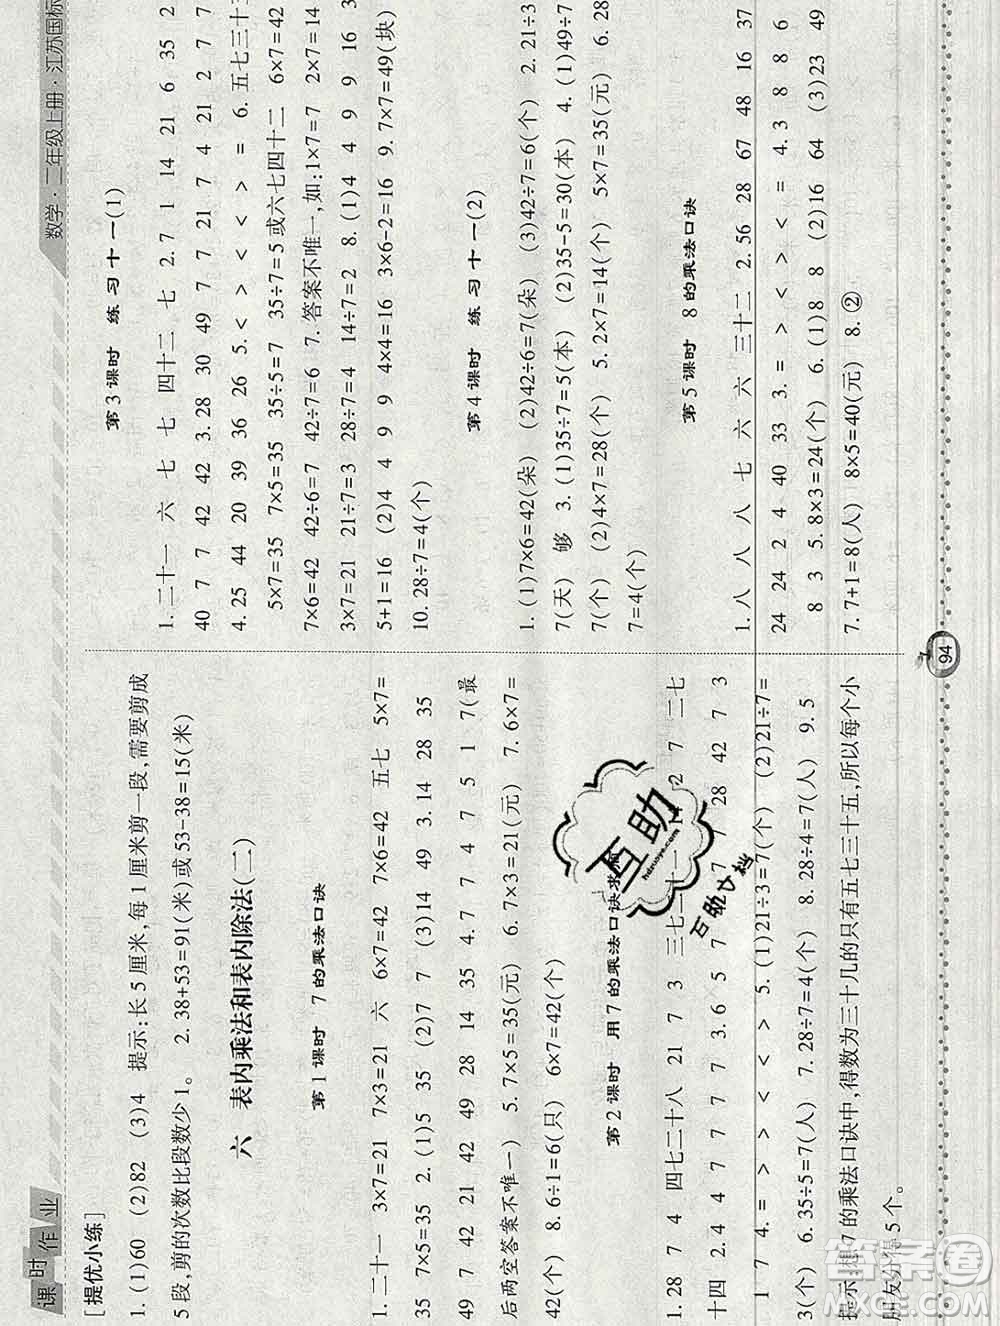 课时作业
数学·二年级上册·江苏国标
[提优小练]
1. (1)60 (2)82 (3)4 提示:长5厘米,每1厘米剪一段,需要剪成
5段,剪的次数比段数少1。 2. 38+53=91(米)或53-38=15(米)
六 表内乘法和表内除法(二)
第1课时 7的乘法口诀
1. 二十一 3×7=21 7×3=21 六 6×7=42 7×6=42 五七 5×7=
35 7×5=35 2. (1)5 35 (2)7 7 (3)14 49 3. 14 28 35
49 7 42 21 42 49 28 14 35 4. 7 7 4 7 5 1 7(最
后两空答案不唯一) 5. 7×5=35(元) 6. 7×3=21(元) 7. 6×7=
42(个) 8. 6÷1=6(只) 6×7=42(个)
第2课时 用7的乘法口诀求
1. 28 7 4 四七二十八 21 7 3 三七二十一 14 2 7 二七
十四 2. 4 4 7 7 7 7 3. 6 5 7 7 7 28 42 7 3
1 7 4. = > > < < > 5. (1)21÷3=7(个) (2)21÷7=
3(个) 6. 35÷5=7(人) 7. 28÷7=4(个) 8. 28÷4=7(人) 9. 5
提示:想7的乘法口诀中,得数为三十几的只有五七三十五,所以每个小
朋友分得5个。
第3课时 练习十一(1)
1. 二十一 六 七 七 四十二 七 2. 7 1 14 21 6 35 2
40 7 7 42 42 3. 28 30 49 7 7 21 7 4 21 2 7 7
4. 25 44 20 39 36 26 5. < > < < > = 6. 五七三十五
5×7=35 7×5=35 35÷5=7 35÷7=5 或六七四十二 6×7=42
7×6=42 42÷6=7 42÷7=6 7. 答案不唯一,如:1×7=7 2×7=14
3×7=21 21÷7=3 28÷7=4 14÷7=2 8. (1)4 4 9 9 16 3
5+1=16 (2)4 4 9 9 4×4=16 3×6-2=16 9. 7×7=49(块)
10. 28÷7=4(个)
第4课时 练习十一(2)
1. (1)7×6=42(朵) (2)42÷6=7(朵) (3)42÷7=6(个) 2. 21÷3
7(天) 够 3. (1)35÷7=5(本) (2)35-5=30(本) 4. (1)49÷7
7(个) (2)4×7=28(个) 5. 2×7=14(个) 5×7=35(元) 6. 28
7=4(个)
第5课时 8的乘法口诀
1. 八 八 八 七 六 六 三十二 2. 56 28 67 48 16 37
24 24 2 4 40 33 3. = > < > < = 4. 3 8 8 6
8 3 5. 8×3=24(个) 6. (1)8 8 (2)16 64 (3)23 49
7. 7+1=8(人) 8×5=40(元) 8. ②
94
互助
hdzuoye.com
互助文档
答案圈
MXQE.COM